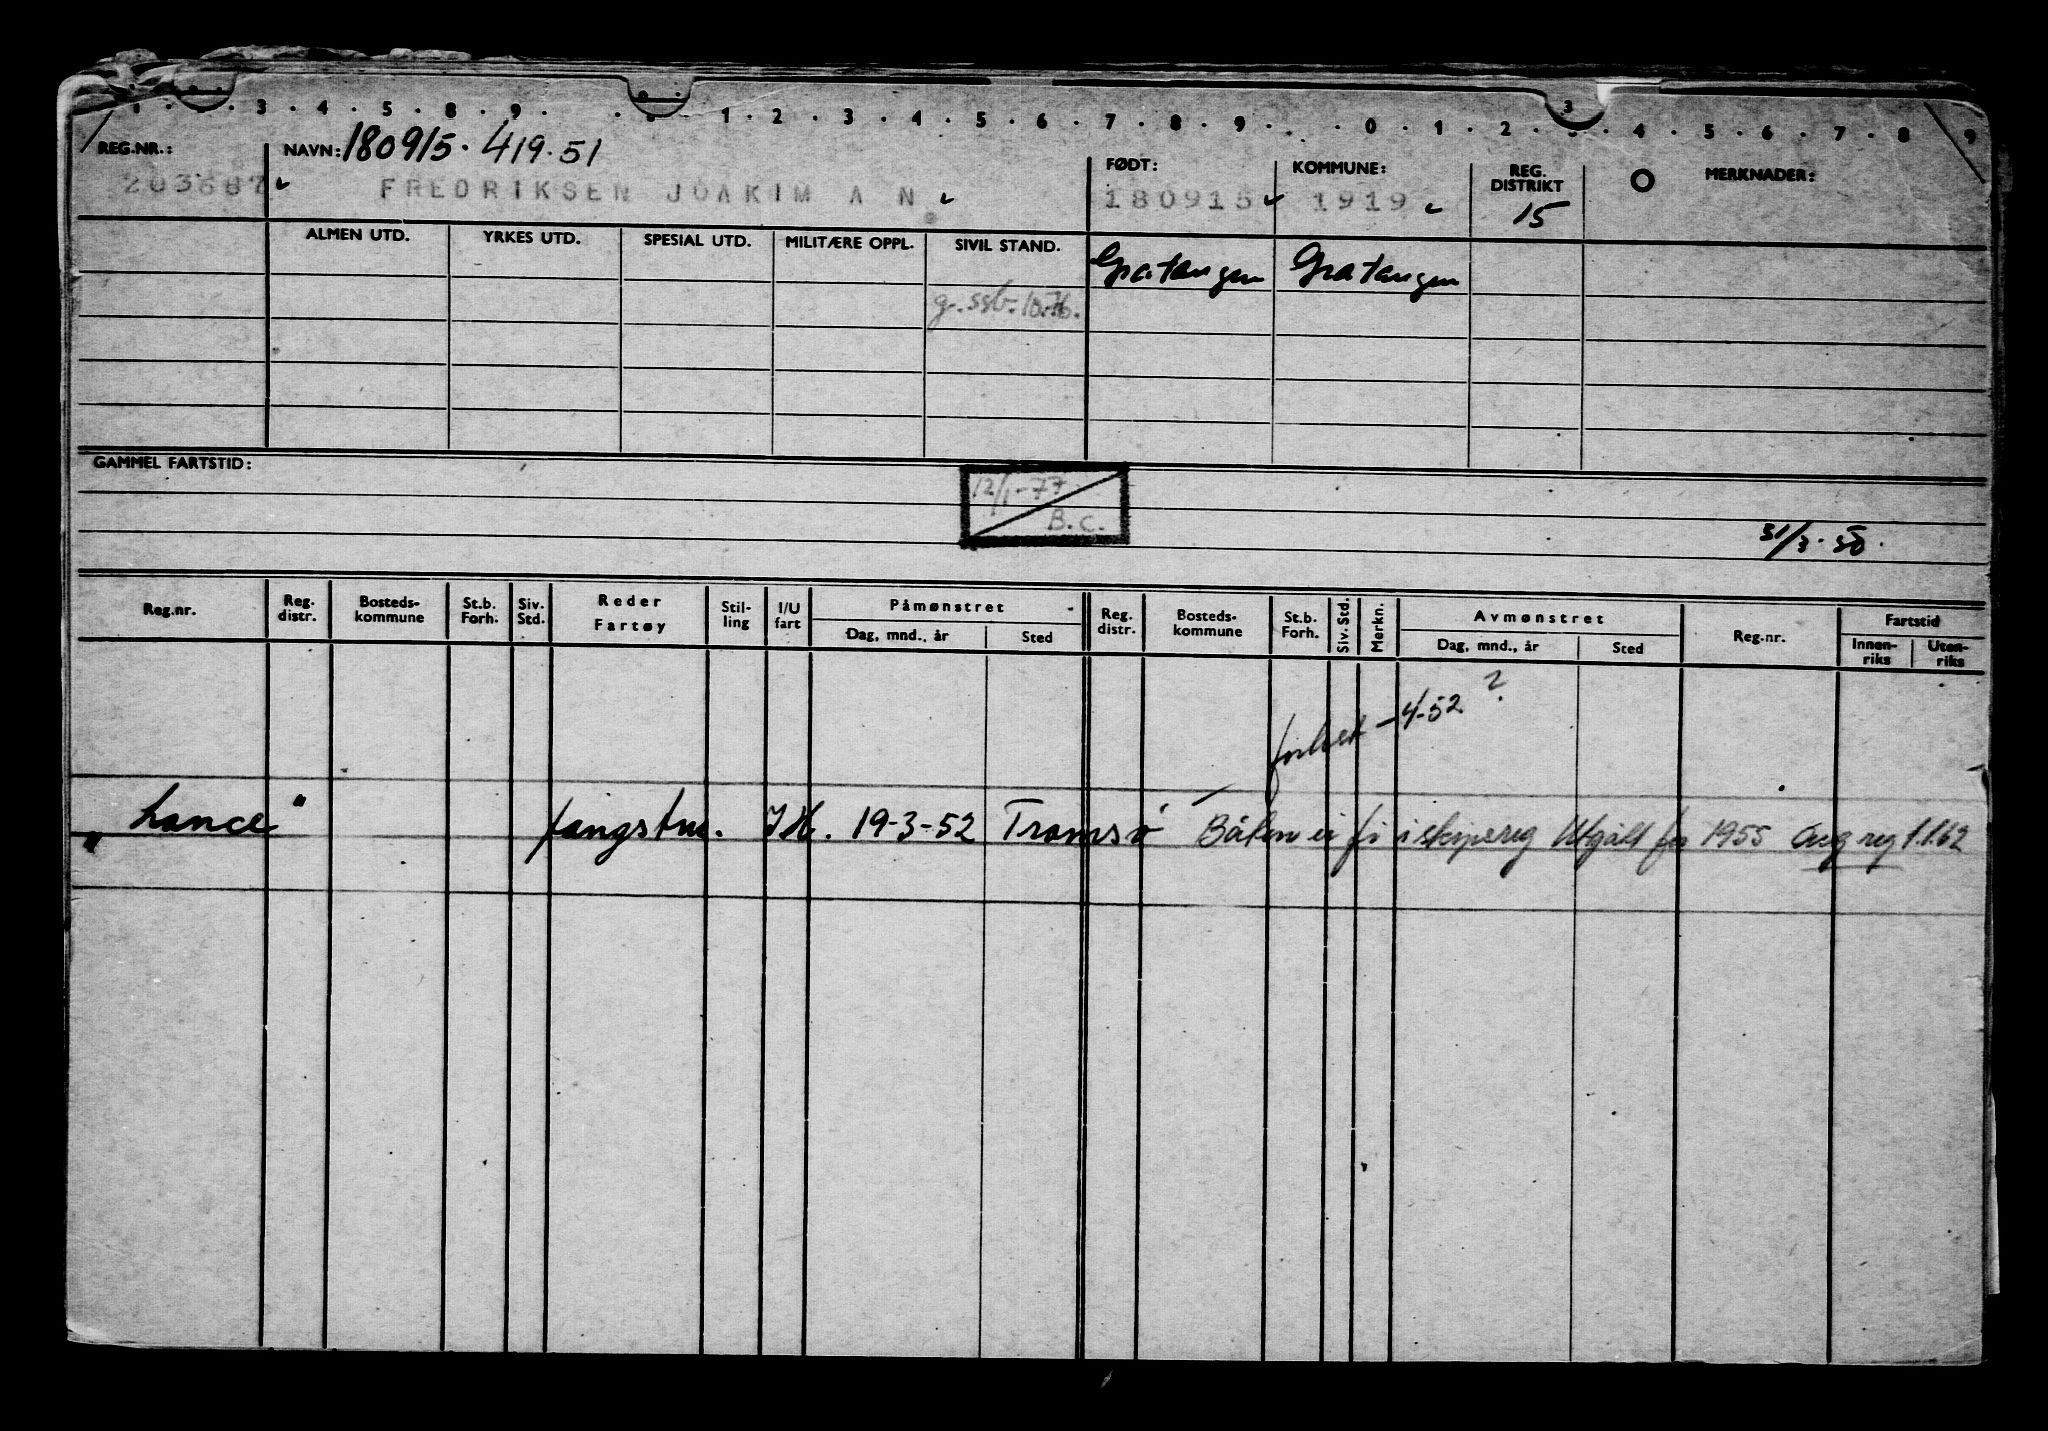 1 . . 3 . 4 . 5 . 8 . 9 . . . 1 . 2 . 3 . 4 . 5 . 6 . 7 . 8 . 9 . . 0 . 1 . 2 . 3 . 4 . 5 . 6 . 7 . 8 . 9
REG.NR.: NAVN: 180915. 419.51 FØDT: KOMMUNE: REG. DISTRIKT MERKNADER:
203687 FREDRIKSEN JOAKIM A N 180915 1919 15
ALMEN UTD. YRKES UTD. SPESIAL UTD. MILITÆRE OPPL. SIVIL STAND.
Gratangen Gratangen
g. ssb. 10.76.
GAMMEL FARTSTID:
12/1-77
B.C.
31/3.50.
Reg.nr. Reg. distr. Bosteds-kommune St.b. Forh. Siv. Std. Reder Fartøy Stil-ling I/U fart Påmønstret Reg. distr. Bosteds-kommune St.b. Forh. Siv. Std. Merkn. Avmønstret Reg.nr. Fartstid
Dag, mnd., år Sted Dag, mnd., år Sted Innen-riks Uten-riks
forlist -4-52 ?
"Lance" fangstm. 19-3-52 Tromsø Båten ei i skipsreg Utgått før 1955 reg 1.1.62